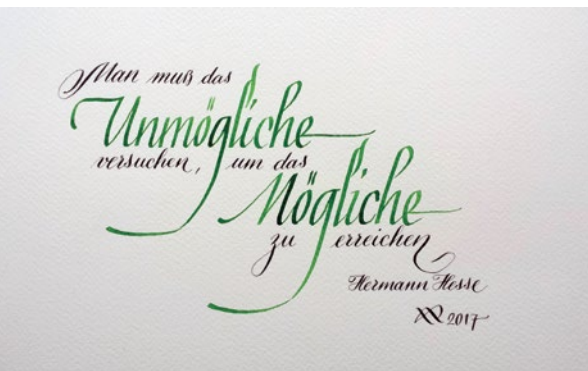 Man muß das
Unmögliche
versuchen, um das
Mögliche
zu erreichen
Hermann Hesse
2017